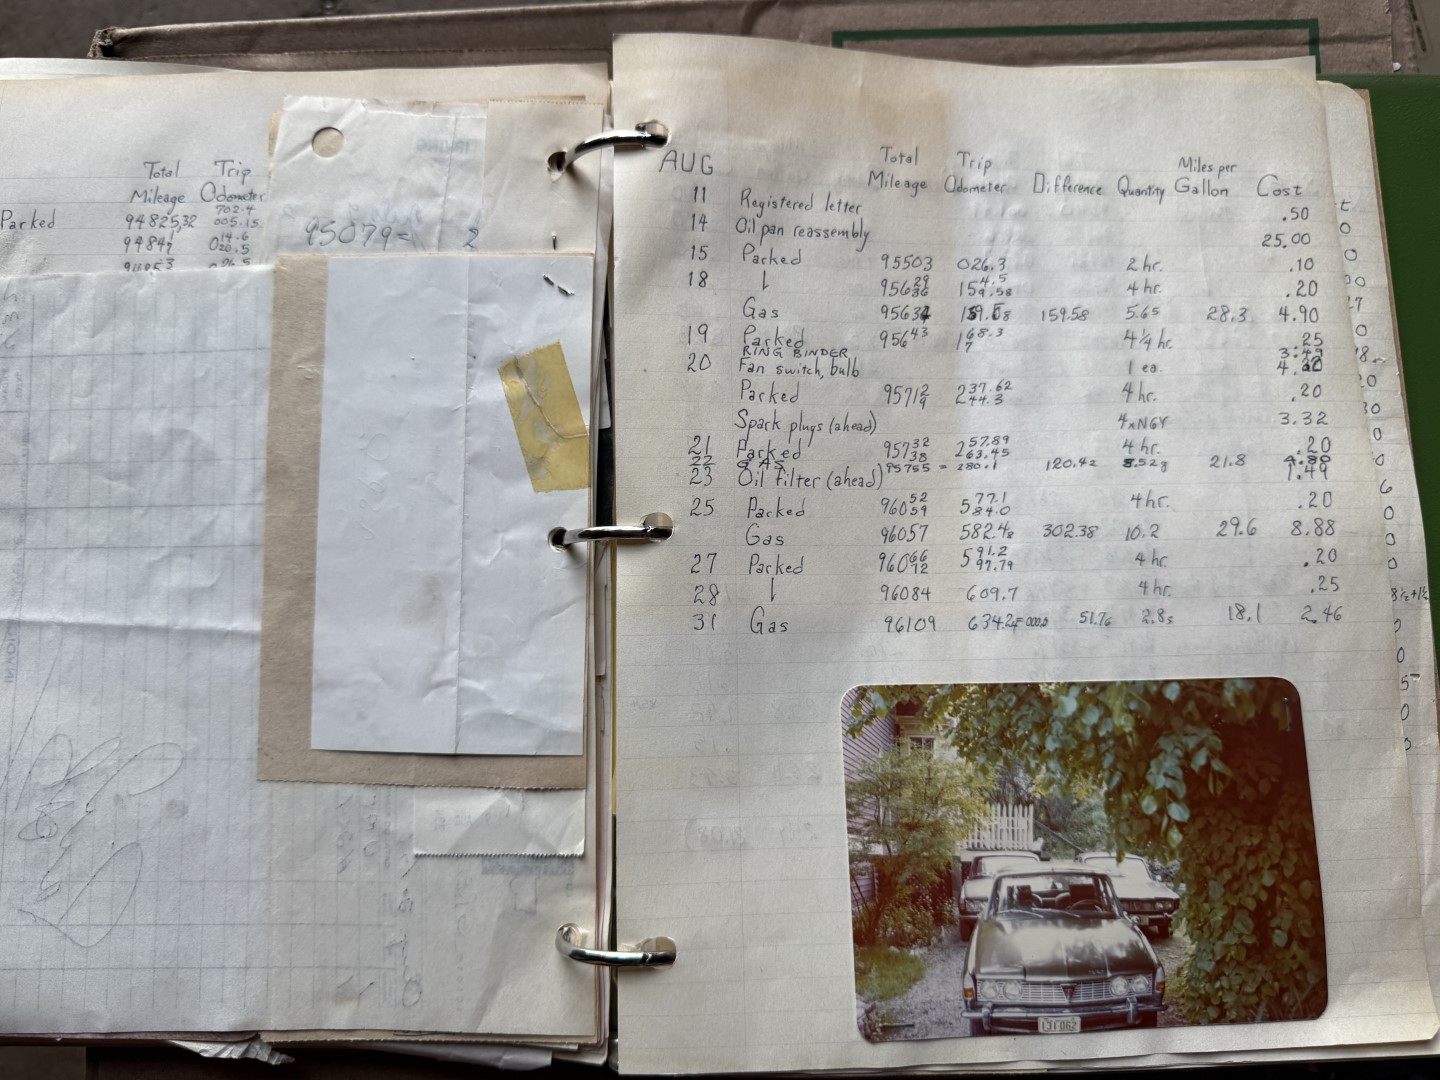 Total Trip
Mileage Odometer
Parked 94825,32 702.4 005.15
94844 014.6 020.5
95079= 2
AUG Total Mileage Trip Odometer Difference Quantity Miles per Gallon Cost
11 Registered letter .50
14 Oil pan reassembly 25.00
15 Parked 95503 026.3 2 hr. .10
18 ↓ 95629 36 154.5 9.58 4 hr. .20
Gas 95634 159.58 5.65 28.3 4.90
19 Parked 95643 168.3 4¼ hr. .25
RING BINDER
20 Fan switch, bulb 1 ea.
Parked 95712 9 237.62 44.3 4 hr. .20
Spark plugs (ahead) 4xNGY 3.32
21 Parked 95732 38 257.89 63.45 4 hr. .20
22 GAS 95755 = 280.1 120.42 21.8
23 Oil filter (ahead) 1.49
25 Parked 96052 59 577.1 84.0 4 hr. .20
Gas 96057 582.48 302.38 10.2 29.6 8.88
27 Parked 96066 72 591.2 97.79 4 hr .20
28 ↓ 96084 609.7 4 hr. .25
31 Gas 96109 51.76 2.85 18.1 2.46